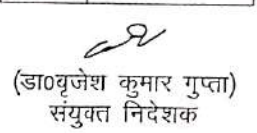 (डा०वृजेश कुमार गुप्ता)
संयुक्त निदेशक